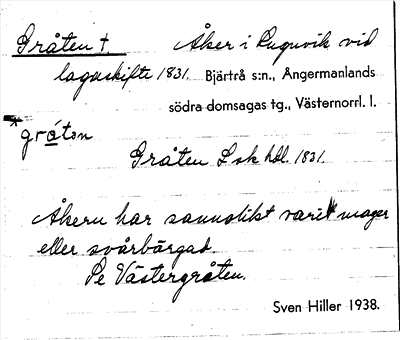 Gråten †. Åker i Lugnvik vid
lagaskifte 1831. Bjärtrå s:n., Angermanlands
södra domsagas tg., Västernorrl. l.
*gråtən
Gråten Lsk hdl. 1831.
Åkern har sannolikt varit mager
eller svårbärgad.
Se Västergråten.
Sven Hiller 1938.